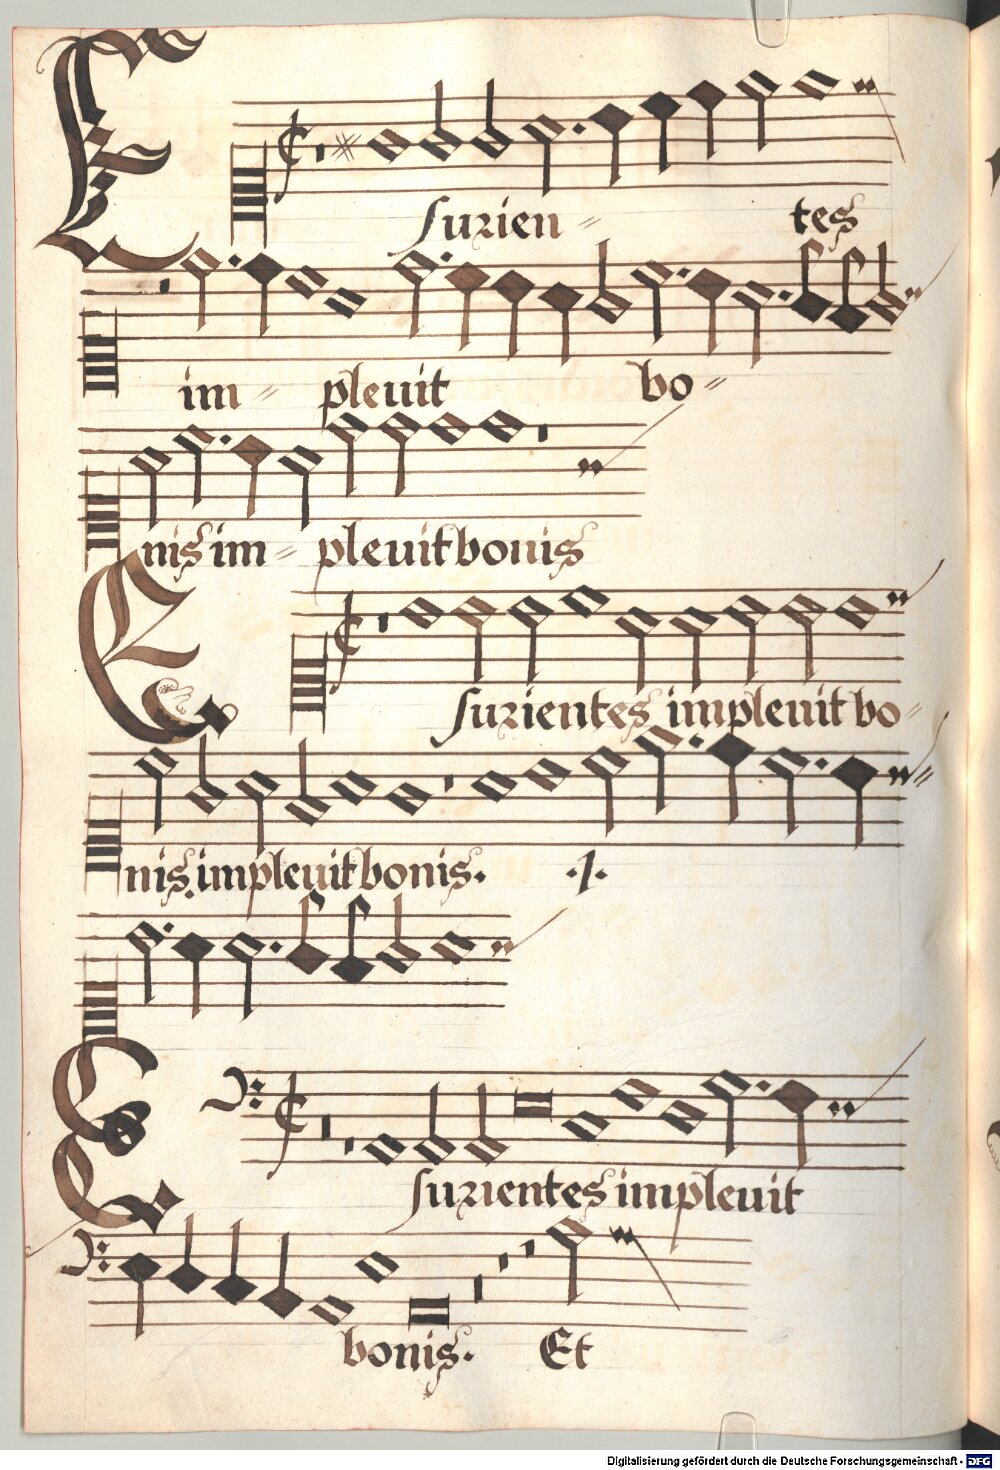 Esurien= tes
im= pleuit bo=
nis im= pleuit bonis
Esurientes impleuit bo=
nis impleuit bonis. .I.
Esurientes impleuit
bonis. Et
Digitalisierung gefördert durch die Deutsche Forschungsgemeinschaft - DFG